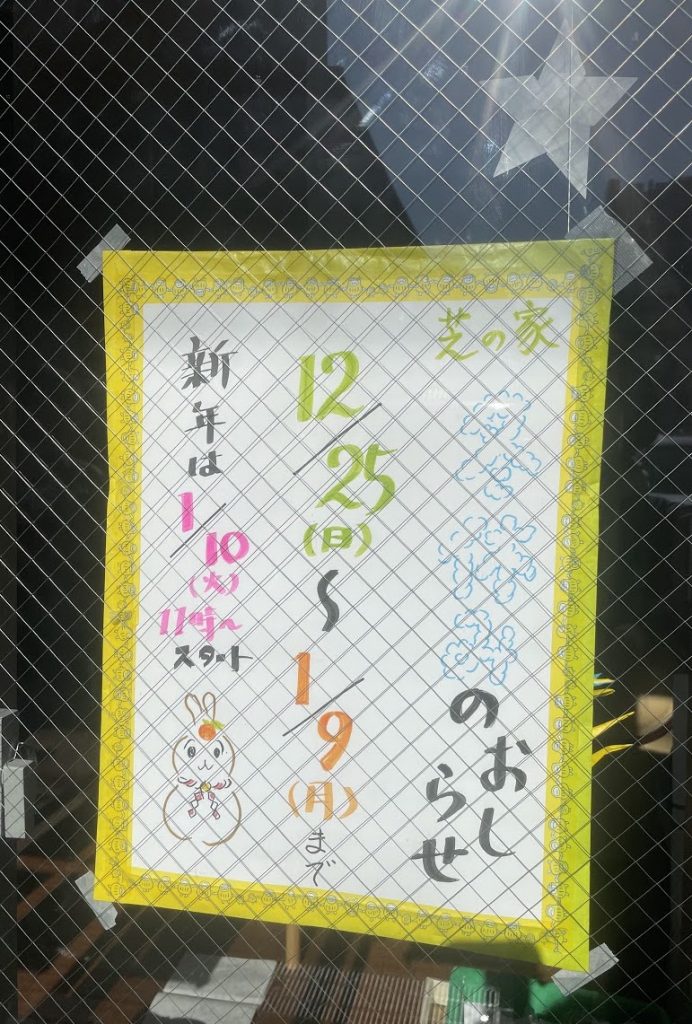 芝の家
冬休み
のおしらせ
12/25
(日)
〜
1/9
(月)
まで
新年は
1/10
(火)
11時〜
スタート